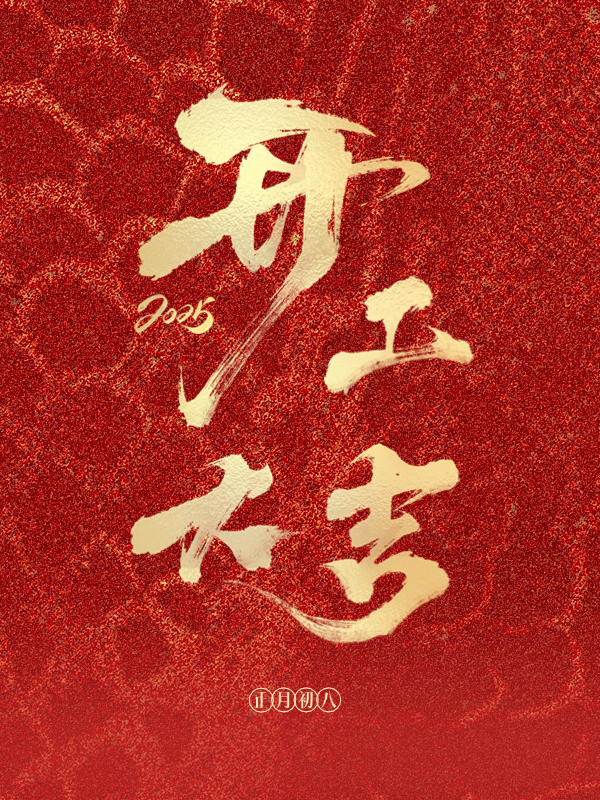 开工
2025
大吉
正月初八